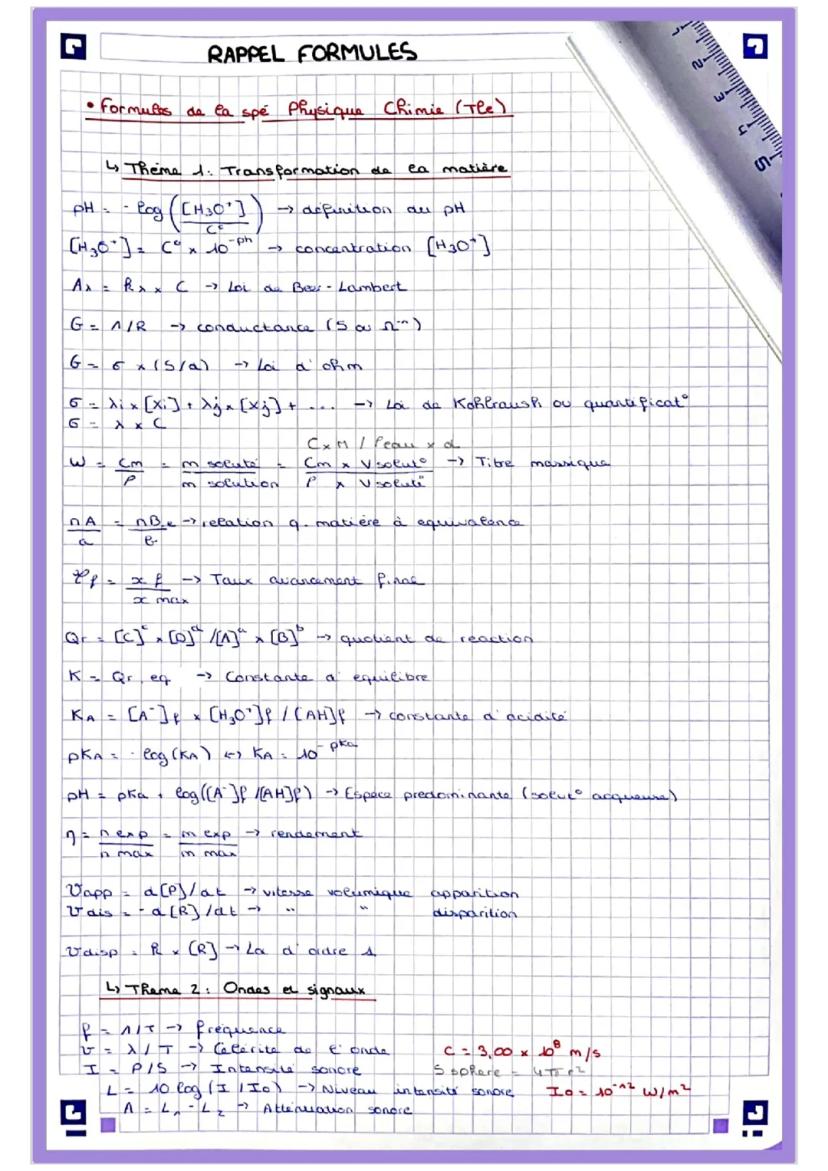 RAPPEL FORMULES
• Formules de la spé Physique Chimie (Tle)
↳ Thème 1: Transformation de la matière
pH = - log ([H3O⁺] / C°) → définition du pH
[H3O⁺] = C° x 10⁻ᵖʰ → concentration [H3O⁺]
Aλ = kλ x C → Loi de Beer - Lambert
G = 1/R → conductance (S ou Ω⁻¹)
G = σ x (S/d) → Loi d'ohm
σ = λi x [Xi] + λj x [Xj] + ... → Loi de Kohlraush ou quantificat°
σ = λ x C
C x M / ρeau x d
W = Cm / ρ = m soluté / m solution = Cm x V solut° / ρ x V soluté → Titre massique
nA / a = nB,e / b → relation q. matière à equivalence
τf = x f / x max → Taux avancement final
Qr = [C]ᶜ x [D]ᵈ / [A]ᵃ x [B]ᵇ → quotient de reaction
K = Qr, eq → Constante d'equilibre
KA = [A⁻]f x [H3O⁺]f / [AH]f → constante d'acidité
pKA = - log (KA) ↔ KA = 10⁻ᵖᴷᵃ
pH = pKa + log([A⁻]f /[AH]f) → Espece predominante (solut° acqueuse)
η = n exp / n max = m exp / m max → rendement
Vapp = d[P]/dt → vitesse volumique apparition
Vdis = - d[R]/dt → " " disparition
Vdisp = k x [R] → Loi d'ordre 1
↳ Thème 2: Ondes et signaux
f = 1/T → frequence
v = λ/T → Célérité de l'onde C = 3,00 x 10⁸ m/s
I = P/S → Intensité sonore S sphere = 4πr²
L = 10 log (I / I0) → Niveau intensité sonore I0 = 10⁻¹² W/m²
A = L₁ - L₂ → Atténuation sonore
2
3
4
5